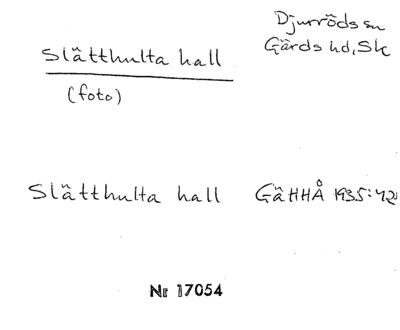 Slätthulta hall
Djurröds sn
Gärds hd, Sk
(foto)
Slätthulta hall GäHHÅ 1935:42
Nr 17054